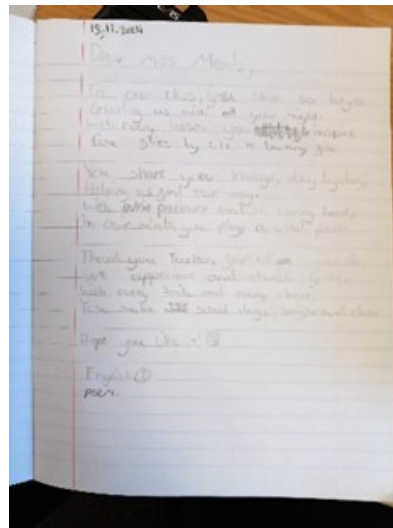 15.11.2024
Dear miss
In our class, you shine so bright
Guiding us with all your might
with every lesson you inspire
Like by
You share your day by day
Helping us find our way
with patience and a caring hand,
In our minds you play a
Thank you Teacher, for all you do
We appreciate and cherish you
With every smile and every cheer,
You make school days bright and clear
Hope you like it!
English
poem.